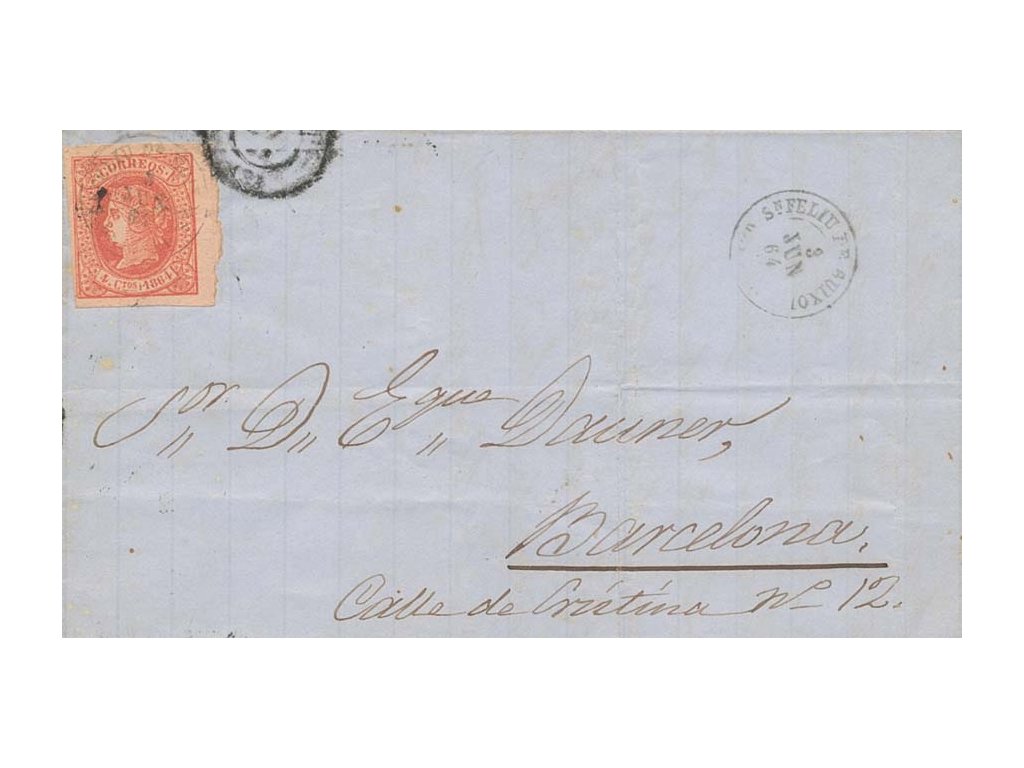 CORREOS
4 Ctos 1864
Sn FELIU DE GUIXOLS
8
JUN
64
Sor. D. Eque Dauner,
Barcelona.
Calle de Cristina No 12.